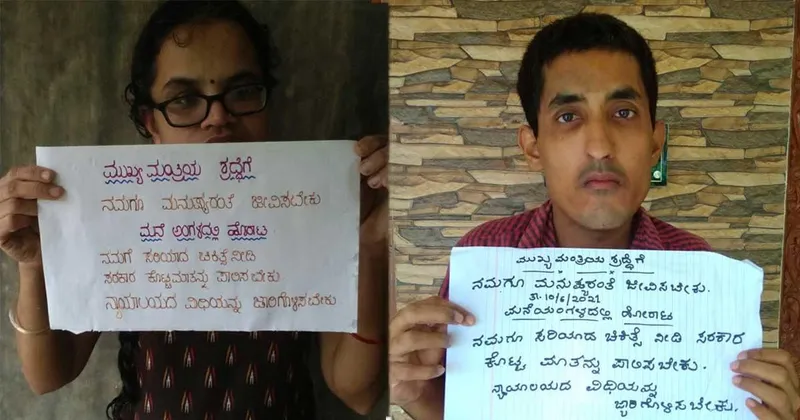 ಮುಖ್ಯ ಮಂತ್ರಿಯ ಶ್ರದ್ಧೆಗೆ
ನಮಗೂ ಮನುಷ್ಯರಂತೆ ಜೀವಿಸಬೇಕು
ಮನೆ ಅಂಗಳದಲ್ಲಿ ಹೋರಾಟ
ನಮಗೆ ಸರಿಯಾದ ಚಿಕಿತ್ಸೆ ನೀಡಿ
ಸರಕಾರ ಕೊಟ್ಟ ಮಾತನ್ನು ಪಾಲಿಸ ಬೇಕು
ನ್ಯಾಯಾಲಯದ ವಿಧಿಯನ್ನು ಜಾರಿಗೊಳಿಸ ಬೇಕು
ಮುಖ್ಯ ಮಂತ್ರಿಯ ಶ್ರದ್ಧೆಗೆ
ನಮಗೂ ಮನುಷ್ಯರಂತೆ ಜೀವಿಸ ಬೇಕು.
ತಾ. 10/6/2021
ಮನೆಯಂಗಳದಲ್ಲಿ ಹೋರಾಟ
ನಮಗೂ ಸರಿಯಾದ ಚಿಕಿತ್ಸೆ ನೀಡಿ ಸರಕಾರ
ಕೊಟ್ಟ ಮಾತನ್ನು ಪಾಲಿಸ ಬೇಕು.
ನ್ಯಾಯಾಲಯದ ವಿಧಿಯನ್ನು
ಜ್ಯಾರಿಗೊಳಿಸ ಬೇಕು.